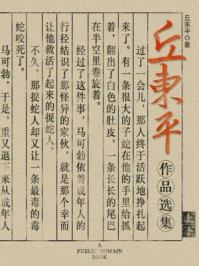 丘东平◎著
丘東平
作品选集
上下
过了一会儿，那人终于活跃地挣扎起
来了。有一条很大的子蛇在他的手里给抓
着，翻出了白色的肚皮，一条长长的尾巴
在半空里卷旋着。
经过了这件事，马可勃依着成年人的
行径结识了那怪异的家伙，就是那个幸而
让他救活了起来的捉蛇人。
不久，那捉蛇人却又让一条最毒的毒
蛇咬死了。
马可勃，于是，重又退 来从成年人
A
PUBLIC DOMAIN
BOOK